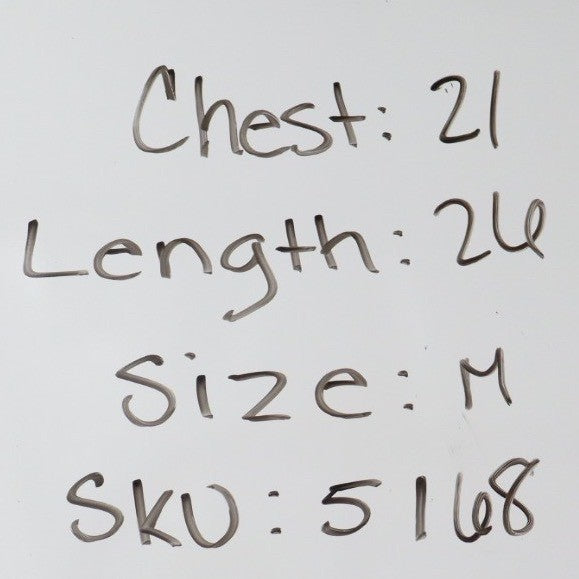 Chest: 21
Length: 26
Size: M
SKU: 5168